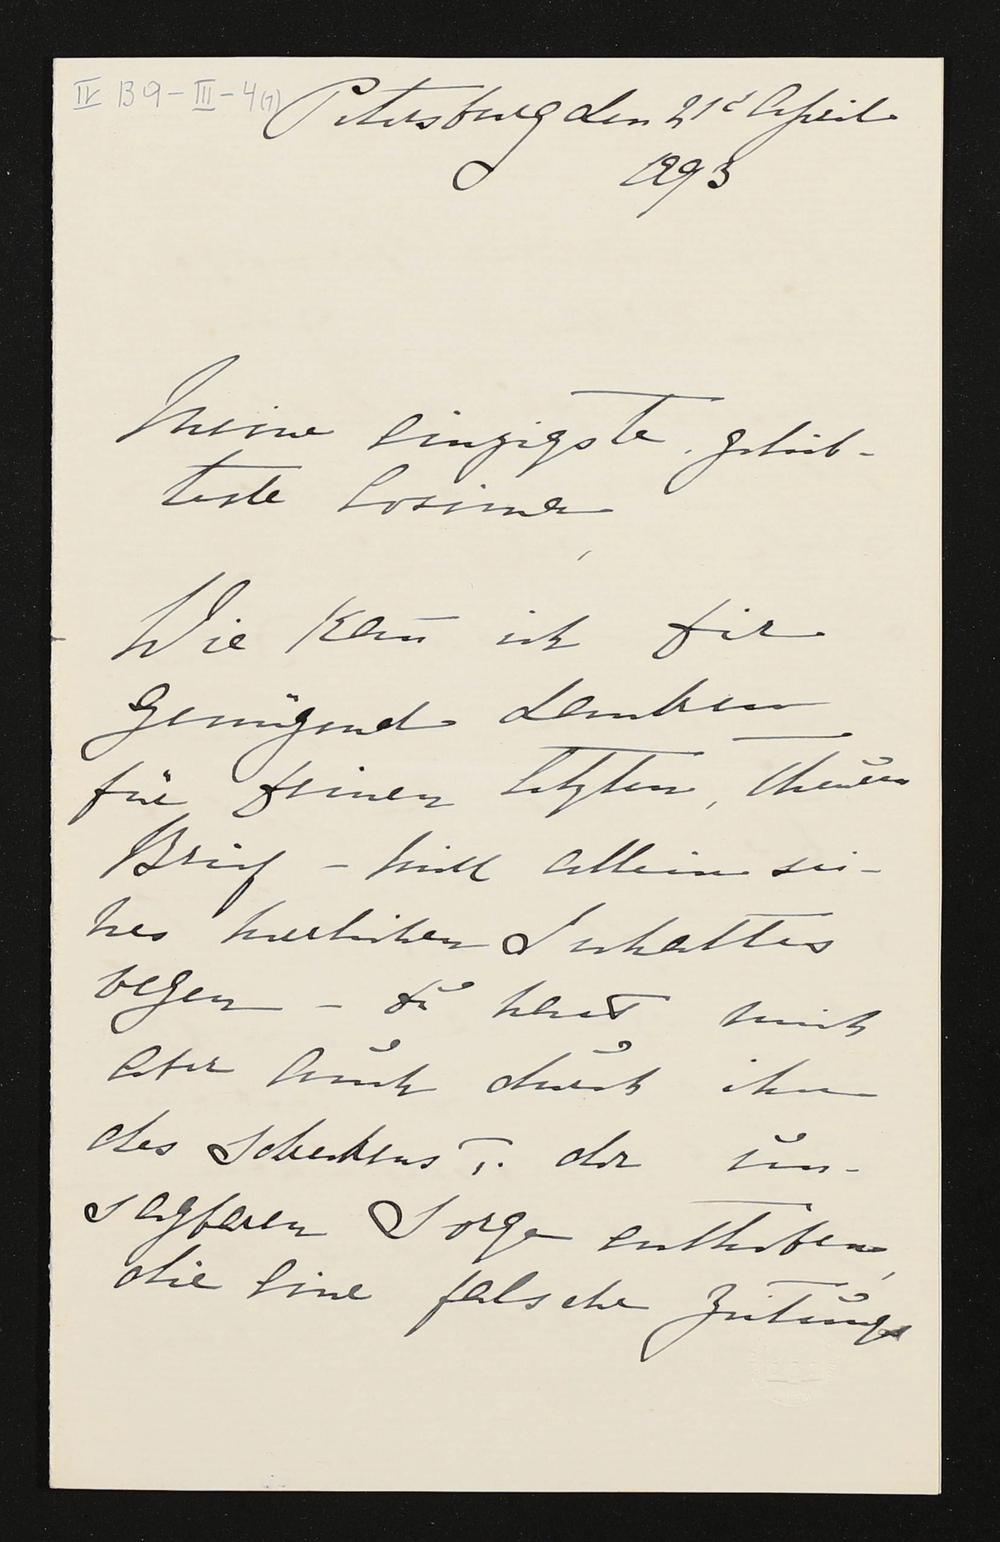 IV B 9 - III - 4 (7)
Petersburg den 21t April
1893
Meine einzigste, gelieb-
teste Cosima,
Wie kan̄ ich dir
genügend danken
für deinen letzten, theuren
Brief – nicht allein sei-
nes herrlichen Inhaltes
wegen – du hast mich
aber auch durch ihn
des Schreckens u. der un-
sagbaren Sorge enthoben,
die eine falsche Zeitungs